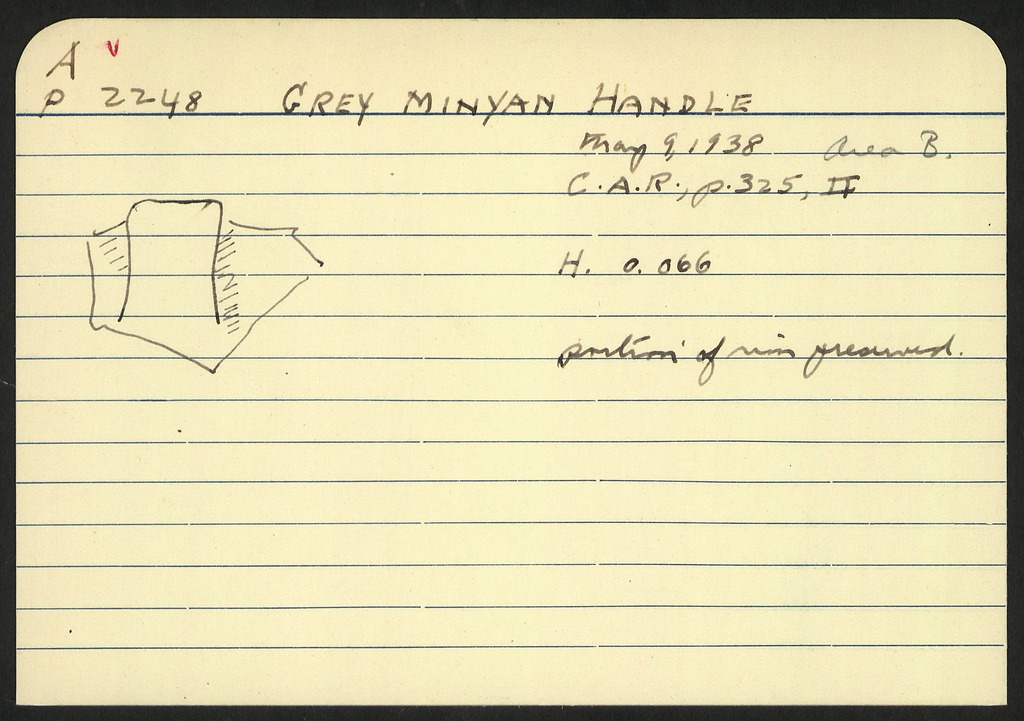 A v
P 2248 GREY MINYAN HANDLE
May 9, 1938 Area B.
C.A.R., p. 325, II
H. 0.066
portion of rim preserved.